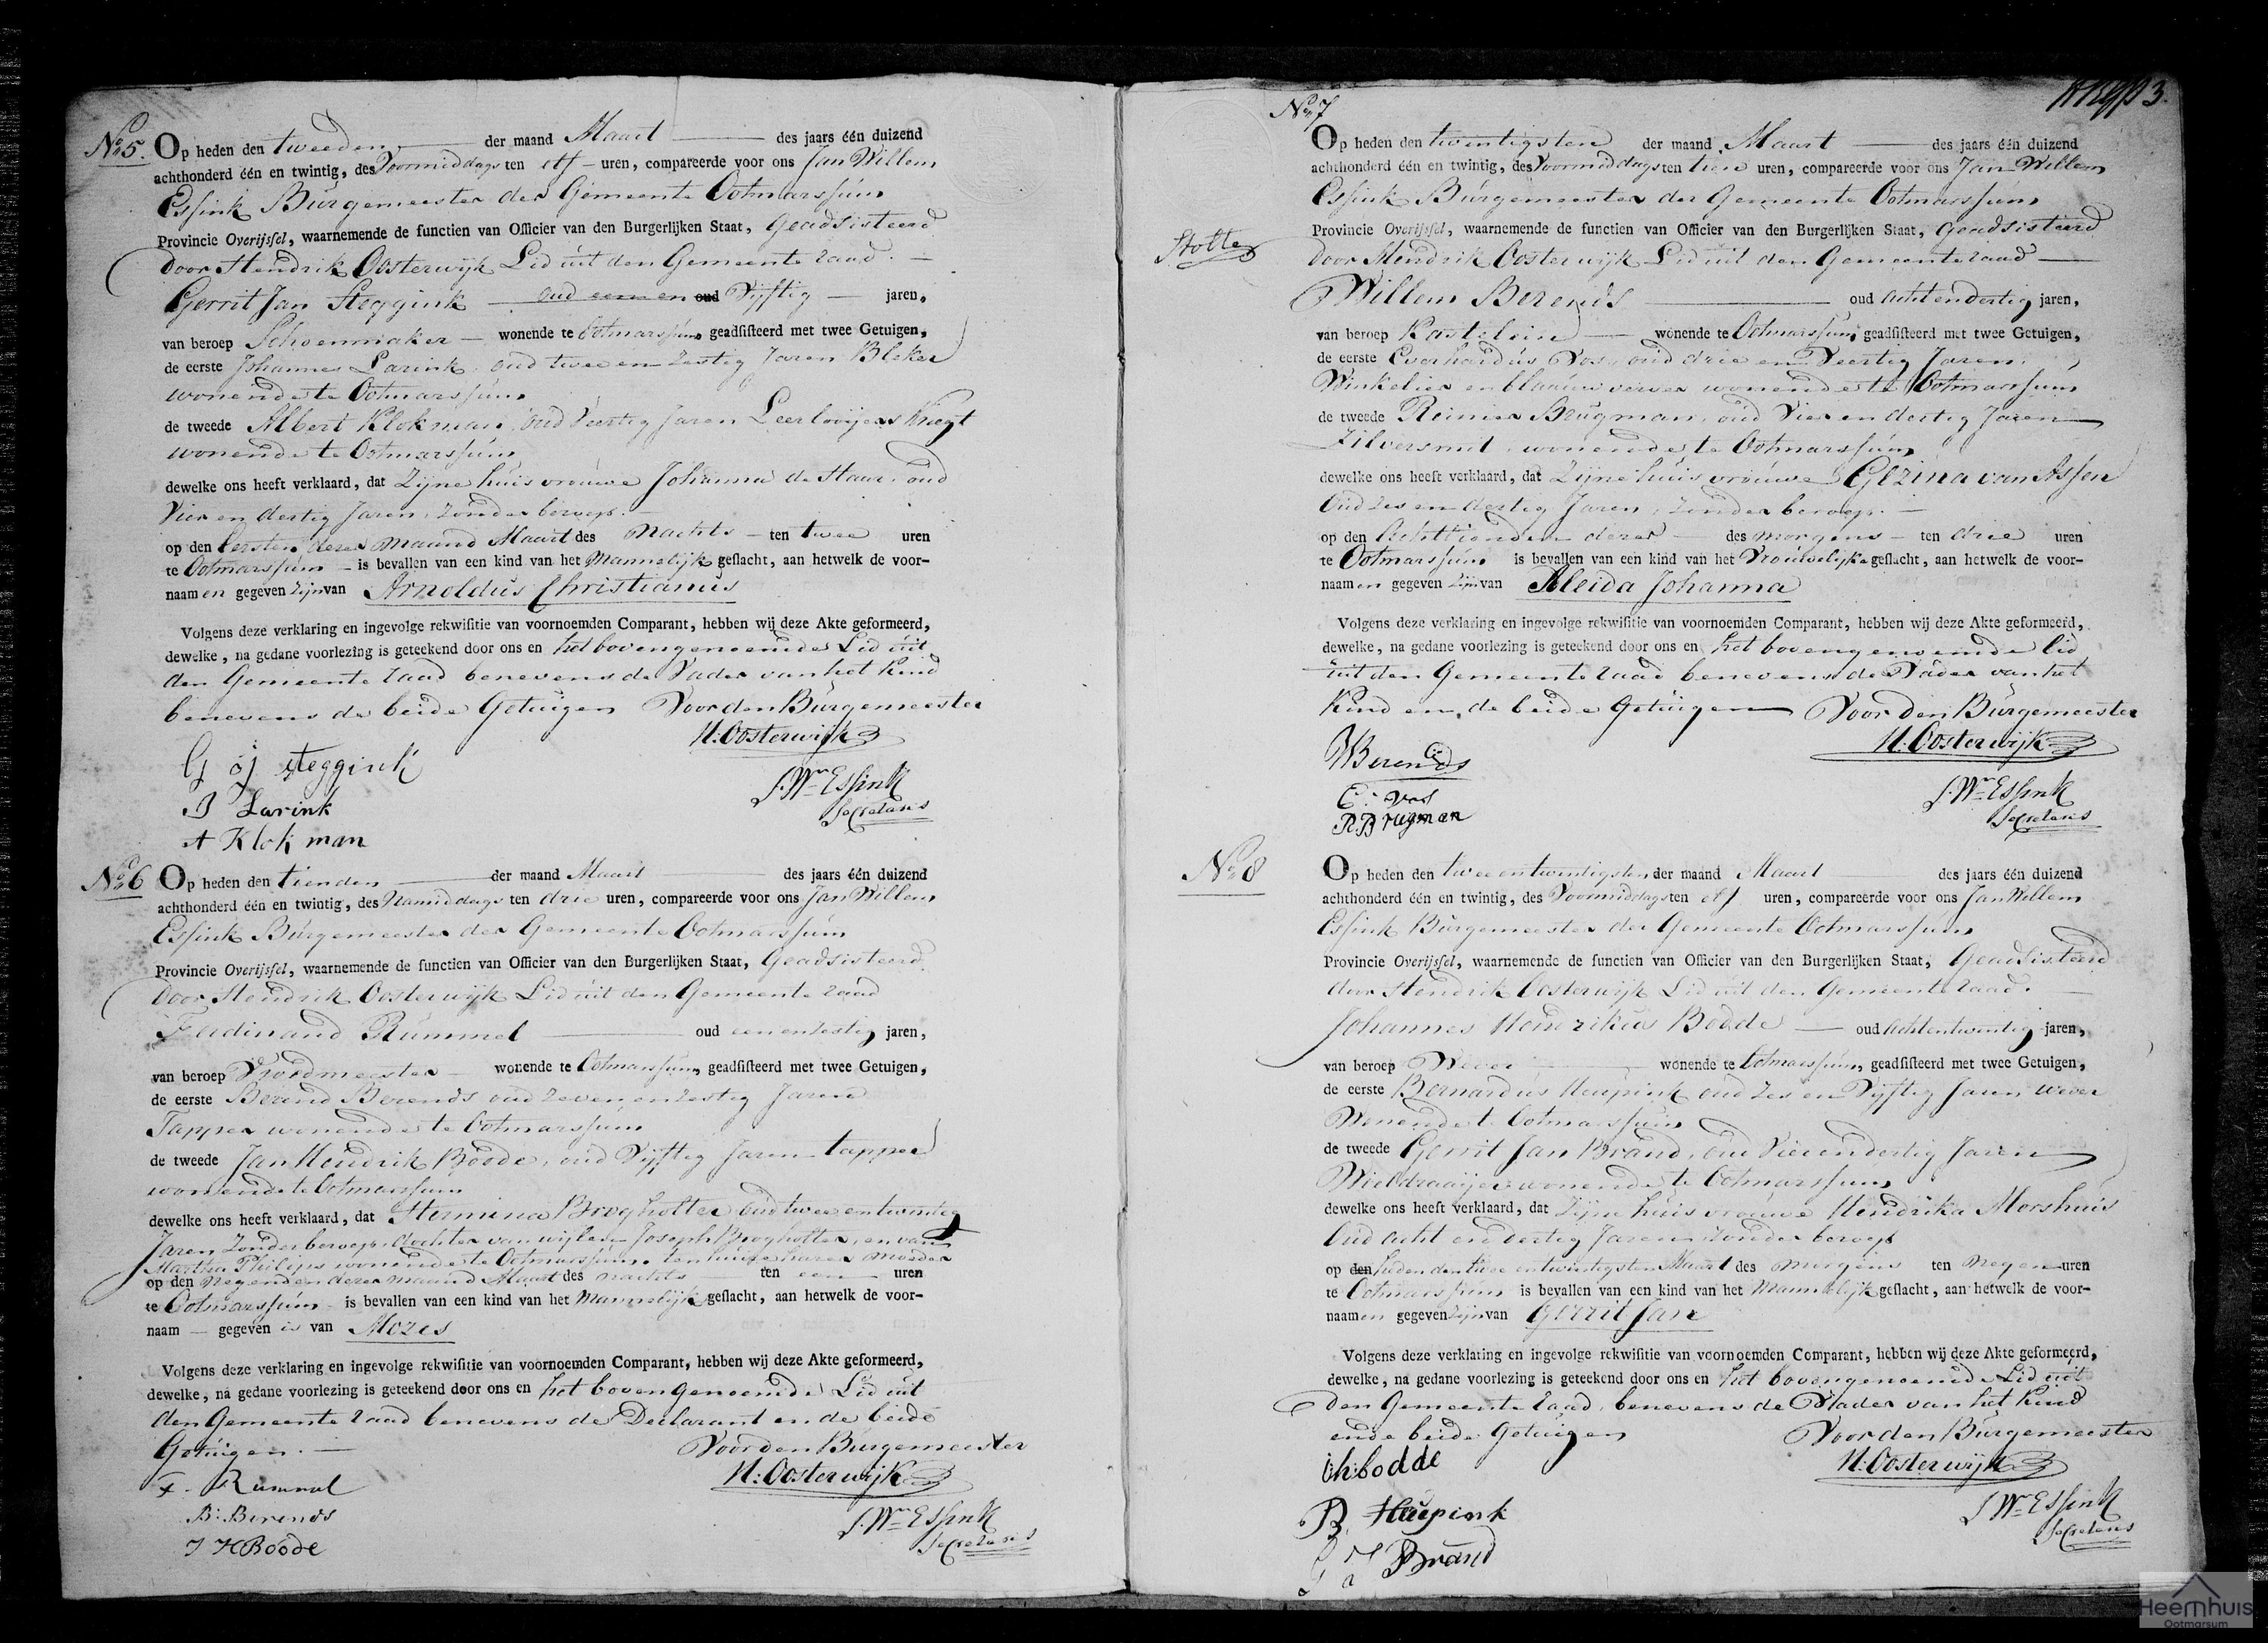 No. 5. Op heden den tweeden der maand Maart des jaars één duizend
achthonderd één en twintig, des Voormiddags ten elf uren, compareerde voor ons Jan Willem
Essink Burgemeester der Gemeente Ootmarssum
Provincie Overijssel, waarnemende de functien van Officier van den Burgerlijken Staat, Geadsisteerd
door Hendrik Oosterwijk Lid uit den Gemeente raad.
Gerrit Jan Steggink oud een en oud Vijftig jaren,
van beroep Schoenmaker wonende te Ootmarssum geadsisteerd met twee Getuigen,
de eerste Johannes Larink oud twee en zestig Jaren Bleker
wonende te Ootmarssum
de tweede Albert Klokman, oud Veertig Jaren Leerlooijers Knegt
wonende te Ootmarssum
dewelke ons heeft verklaard, dat Zijne huisvrouwe Johanna de Haar oud
Vier en dertig Jaren, zonder beroep.
op den Eersten dezer maand Maart des Nachts ten twee uren
te Ootmarssum is bevallen van een kind van het Mannelijk geslacht, aan hetwelk de voor-
naamen gegeven zijn van Arnoldus Christianus
Volgens deze verklaring en ingevolge rekwisitie van voornoemden Comparant, hebben wij deze Akte geformeerd,
dewelke, na gedane voorlezing is geteekend door ons en het bovengenoemde Lid uit
den Gemeente raad benevens de Vader van het Kind
benevens de beide Getuigen Voor den Burgemeester
H: Oosterwijk
G J Steggink
J. Wm Essink
Secretaris
J Larink
A Klokman
No. 6 Op heden den tienden der maand Maart des jaars één duizend
achthonderd één en twintig, des Namiddags ten drie uren, compareerde voor ons Jan Willem
Essink Burgemeester der Gemeente Ootmarssum
Provincie Overijssel, waarnemende de functien van Officier van den Burgerlijken Staat, Geadsisteerd
door Hendrik Oosterwijk Lid uit den Gemeente raad
Ferdinand Rummel oud een en zestig jaren,
van beroep Vroedmeester wonende te Ootmarssum geadsisteerd met twee Getuigen,
de eerste Berend Berends oud zeven en zestig Jaren
Tapper wonende te Ootmarssum
de tweede Jan Hendrik Boode, oud Vijftig Jaren tapper
wonende te Ootmarssum
dewelke ons heeft verklaard, dat Hermina Brogholter oud twee en twintig
Jaren zonder beroep, dochter van wijlen Joseph Brogholter, en van
Martha Philips wonende te Ootmarssum, ten huize harer moeder
op den negenden dezer maand Maart des nachts ten een uren
te Ootmarssum is bevallen van een kind van het Mannelijk geslacht, aan hetwelk de voor-
naam gegeven is van Mozes
Volgens deze verklaring en ingevolge rekwisitie van voornoemden Comparant, hebben wij deze Akte geformeerd,
dewelke, na gedane voorlezing is geteekend door ons en het bovengenoemde Lid uit
den Gemeente raad benevens de Declarant en de beide
Getuigen. Voor den Burgemeester
H: Oosterwijk
F. Rummel
B: Berends
J. Wm Essink
Secretaris
J H Boode
3.
No. 7
Op heden den twintigsten der maand Maart des jaars één duizend
achthonderd één en twintig, des Voormiddags ten tien uren, compareerde voor ons Jan Willem
Essink Burgemeester der Gemeente Ootmarssum
Provincie Overijssel, waarnemende de functien van Officier van den Burgerlijken Staat, Geadsisteerd
Stolte
door Hendrik Oosterwijk Lid uit den Gemeente raad
Willem Berends oud Acht en dertig jaren,
van beroep Kastelein wonende te Ootmarssum geadsisteerd met twee Getuigen,
de eerste Everhardus Vos oud drie en Veertig Jaren
Winkelier en blaauwverver wonende te Ootmarssum
de tweede Reinier Brugman, oud Vier en dertig Jaren
Zilversmit wonende te Ootmarssum
dewelke ons heeft verklaard, dat Zijne huisvrouwe Gezina van Assen
Oud zes en dertig Jaren, zonder beroep.
op den Achttienden dezer des morgens ten drie uren
te Ootmarssum is bevallen van een kind van het Vrouwelijke geslacht, aan hetwelk de voor-
naamen gegeven zijn van Aleida Johanna
Volgens deze verklaring en ingevolge rekwisitie van voornoemden Comparant, hebben wij deze Akte geformeerd,
dewelke, na gedane voorlezing is geteekend door ons en het bovengenoemde lid
uit den Gemeente raad benevens de Vader van het
Kind en de beide Getuigen Voor den Burgemeester
H: Oosterwijk
W Berends
E: Vos
R. Brugman
J. Wm Essink
Secretaris
No. 8 Op heden den twee en twintigsten der maand Maart des jaars één duizend
achthonderd één en twintig, des Voormiddags ten elf uren, compareerde voor ons Jan Willem
Essink Burgemeester der Gemeente Ootmarssum
Provincie Overijssel, waarnemende de functien van Officier van den Burgerlijken Staat, Geadsisteerd
door Hendrik Oosterwijk Lid uit den Gemeente raad.
Johannes Hendrikus Bodde oud Acht en twintig jaren,
van beroep Wever wonende te Ootmarssum, geadsisteerd met twee Getuigen,
de eerste Bernardus Heupink oud zes en Vijftig Jaren wever
Wonende te Ootmarssum
de tweede Gerrit Jan Brand, oud Vier en dertig Jaren
Wieldraaijer wonende te Ootmarssum
dewelke ons heeft verklaard, dat Zijne huisvrouwe Hendrika Morshuis
Oud acht en dertig Jaren zonder beroep
op den heden den twee en twintigsten Maart des morgens ten Negen uren
te Ootmarssum is bevallen van een kind van het Mannelijk geslacht, aan hetwelk de voor-
naamen gegeven zijn van Gerrit Jan
Volgens deze verklaring en ingevolge rekwisitie van voornoemden Comparant, hebben wij deze Akte geformeerd,
dewelke, na gedane voorlezing is geteekend door ons en het bovengenoemde Lid uit
den Gemeente raad, benevens de Vader van het Kind
en de beide Getuigen Voor den Burgemeester
H: Oosterwijk
bodde
B. Heupink
J Wm Essink
Secretaris
G J Brand
Heemhuis
Ootmarsum